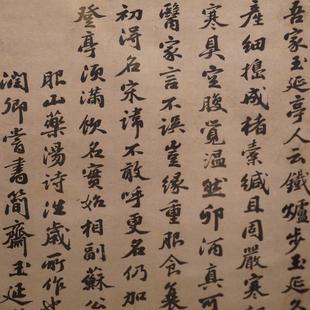 吾家玉延亭人云鐵爐步玉延久
産細擣成楮素緘且固嚴寒
寒具空腹覺温然卯酒真可
醫家言不誤豈緣重服食
初得名宋諱不敢呼更名仍加
登亭須滿飲名實始相副蘇公
服山藥湯詩往歲所作也
润卿嘗書簡齋玉延